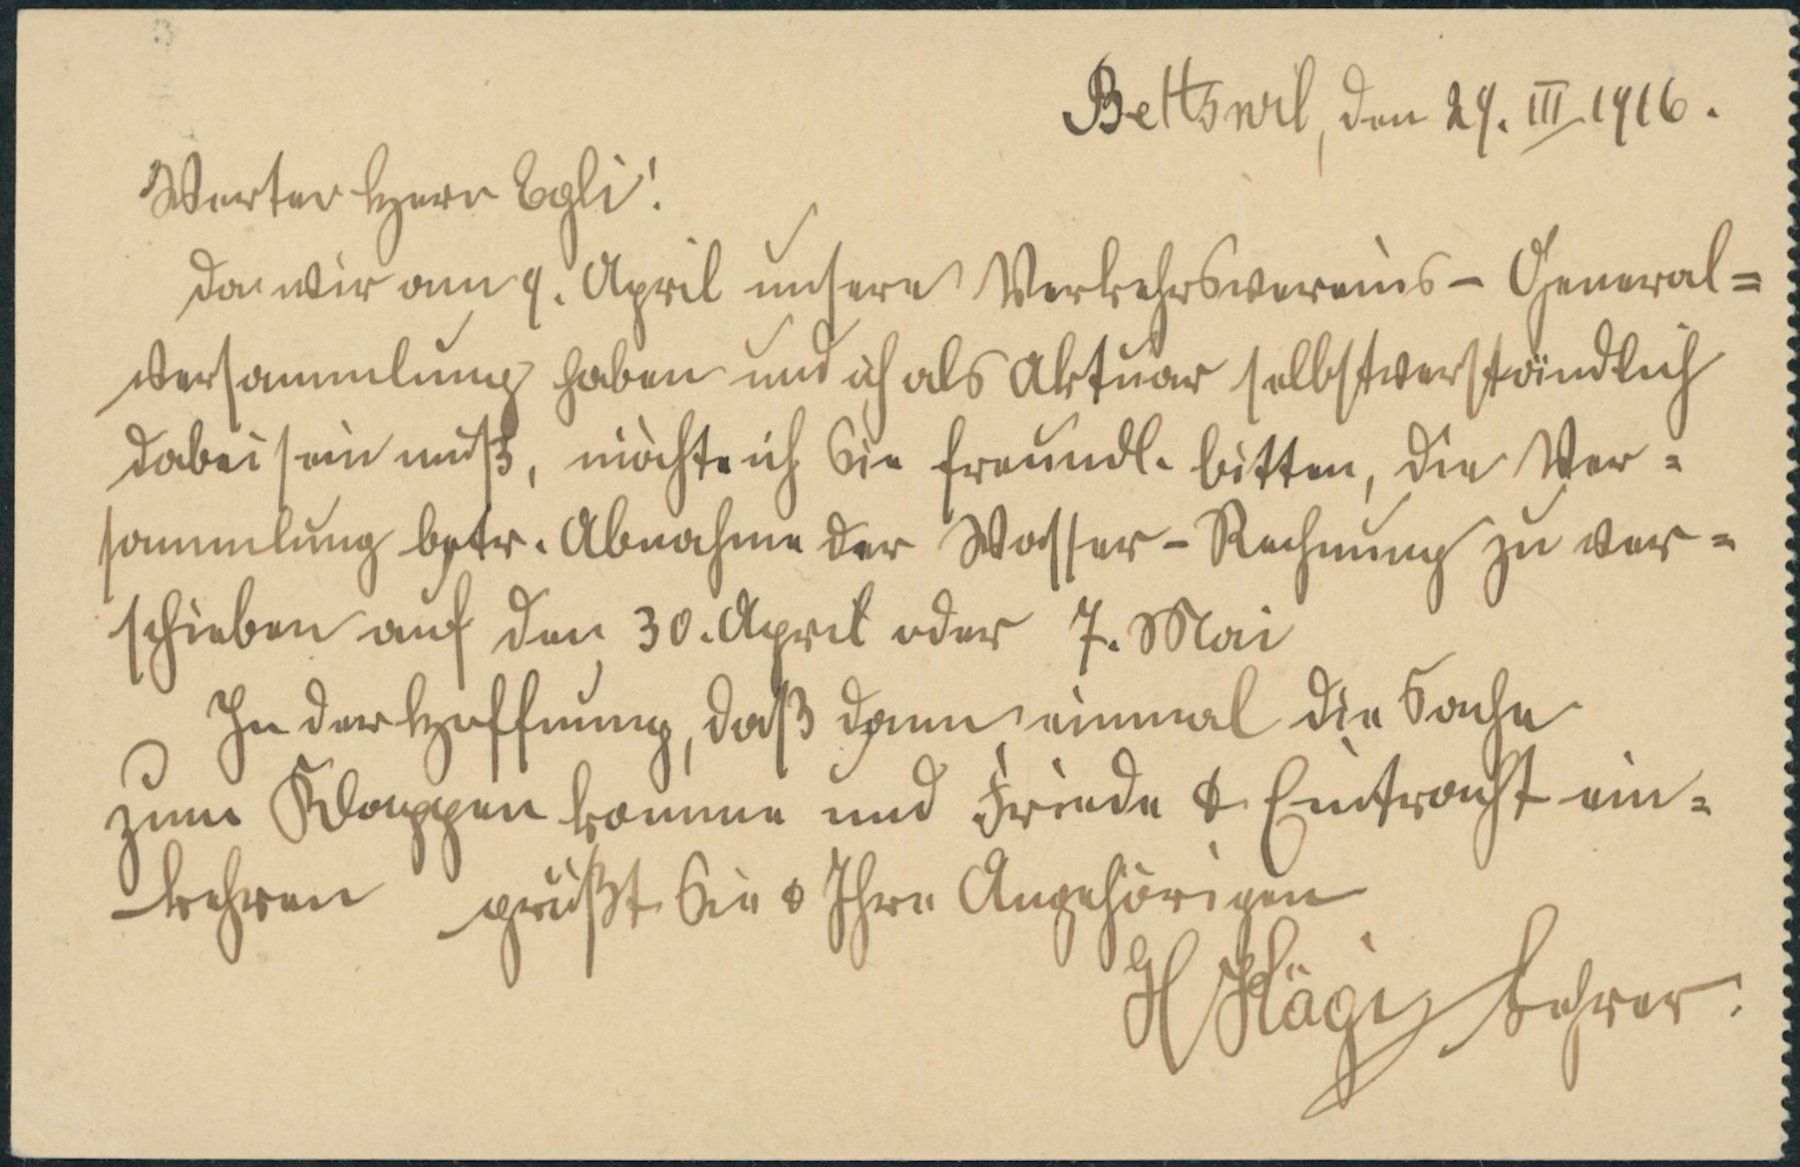 Bettswil, den 29. III. 1916.
Werter Herr Egli!
Da wir am 9. April unsere Verkehrsvereins - General=
versammlung haben und ich als Aktuar selbstverständlich
dabei sein muß, möchte ich Sie freundl. bitten, die Ver=
sammlung betr. Abnahme der Wasser - Rechnung zu ver=
schieben auf den 30. April oder 7. Mai
In der Hoffnung, daß dann einmal die Sache
zum Klappen komme und Friede & Eintracht ein=
kehren grüßt Sie & Ihre Angehörigen
H Hägi, Lehrer.